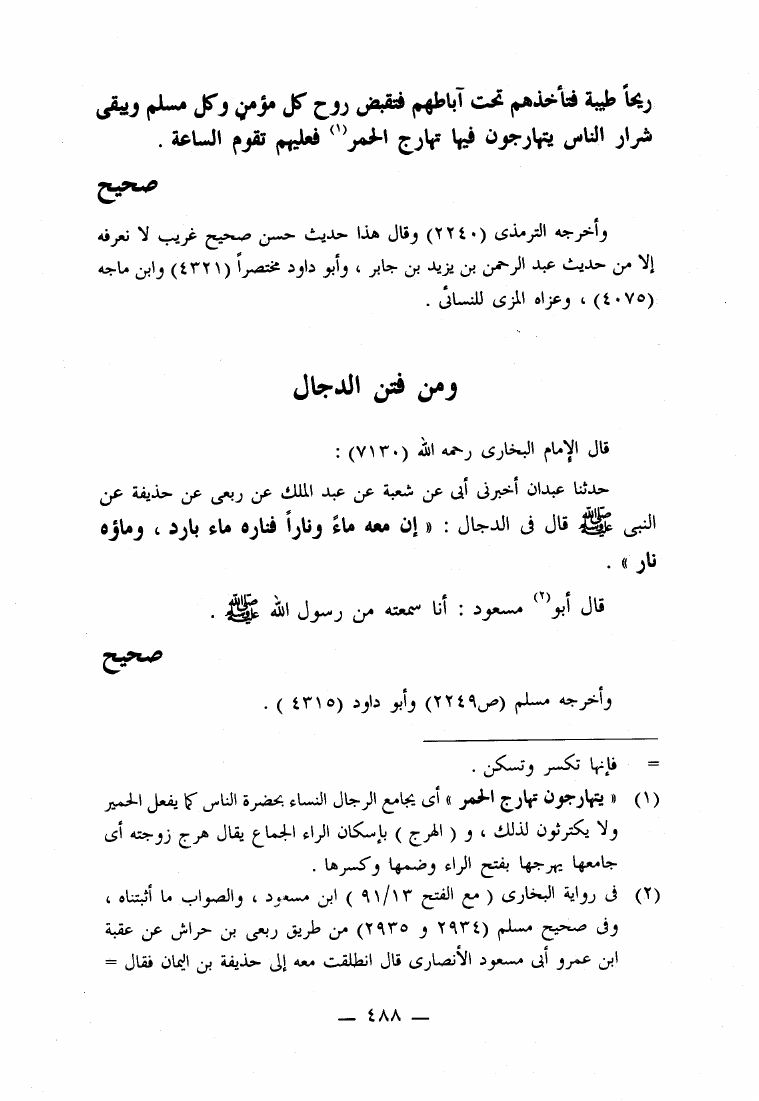 ريحاً طيبة فتأخذهم تحت آباطهم فتقبض روح كل مؤمن وكل مسلم ويبقى
شرار الناس يتهارجون فيها تهارج الحمر(١) فعليهم تقوم الساعة .
صحيح
وأخرجه الترمذى (٢٢٤٠) وقال هذا حديث حسن صحيح غريب لا نعرفه
إلا من حديث عبد الرحمن بن يزيد بن جابر ، وأبو داود مختصراً (٤٣٢١) وابن ماجه
(٤٠٧٥) ، وعزاه المزى للنسائى .
ومن فتن الدجال
قال الإمام البخارى رحمه الله (٧١٣٠) :
حدثنا عبدان أخبرنى أبى عن شعبة عن عبد الملك عن ربعى عن حذيفة عن
النبى ﷺ قال فى الدجال : « إن معه ماءً وناراً فناره ماء بارد ، وماؤه
نار » .
قال أبو(٢) مسعود : أنا سمعته من رسول الله ﷺ .
صحيح
وأخرجه مسلم (ص٢٢٤٩) وأبو داود (٤٣١٥ ) .
= فإنها تكسر وتسكن .
(١) « يتهارجون تهارج الحمر » أى يجامع الرجال النساء بحضرة الناس كما يفعل الحمير
ولا يكترثون لذلك ، و ( الهرج ) بإسكان الراء الجماع يقال هرج زوجته أى
جامعها يهرجها بفتح الراء وضمها وكسرها .
(٢) فى رواية البخارى ( مع الفتح ٩١/١٣ ) ابن مسعود ، والصواب ما أثبتناه ،
وفى صحيح مسلم (٢٩٣٤ و ٢٩٣٥) من طريق ربعى بن حراش عن عقبة
ابن عمرو أبى مسعود الأنصارى قال انطلقت معه إلى حذيفة بن اليمان فقال =
— ٤٨٨ —